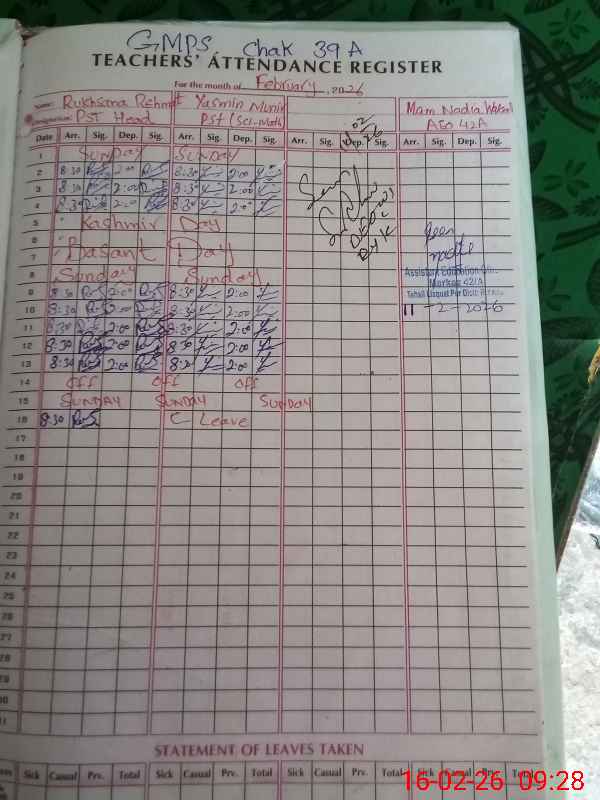 GMPS Chak 39 A
TEACHERS' ATTENDANCE REGISTER
For the month of February, 2026
Name: Rukhsana Rehmat Yasmin Munir Mam Nadia
Designation: PST Head PST (Sci-Math) AEO 42A
Date Arr. Sig. Dep. Sig. Arr. Sig. Dep. Sig. Arr. Sig. Dep. Sig. Arr. Sig. Dep. Sig.
1 SUNDAY SUNDAY
2 8:30 2:00 8:30 2:00
3 8:30 2:00 8:30 2:00
4 8:30 2:00 8:30 2:00
5 Kashmir Day
6
7 Basant Day
8 Sunday Sunday
9 8:30 2:00 8:30 2:00
10 8:30 2:00 8:30 2:00
11 8:30 2:00 8:30 2:00
12 8:30 2:00 8:30 2:00
13 8:30 2:00 2:00
14 off off off
15 SUNDAY SUNDAY SUNDAY
16 8:30 C Leave
17
18
19
20
21
22
23
24
25
26
27
28
29
30
31
Seen
Assistant Education
Markaz 42/A
Tehsil Liaquat Pur Distt
11-2-2026
STATEMENT OF LEAVES TAKEN
Sick Casual Prv. Total Sick Casual Prv. Total Sick Casual Prv. Total Sick Casual Prv. Total
16-02-26 09:28